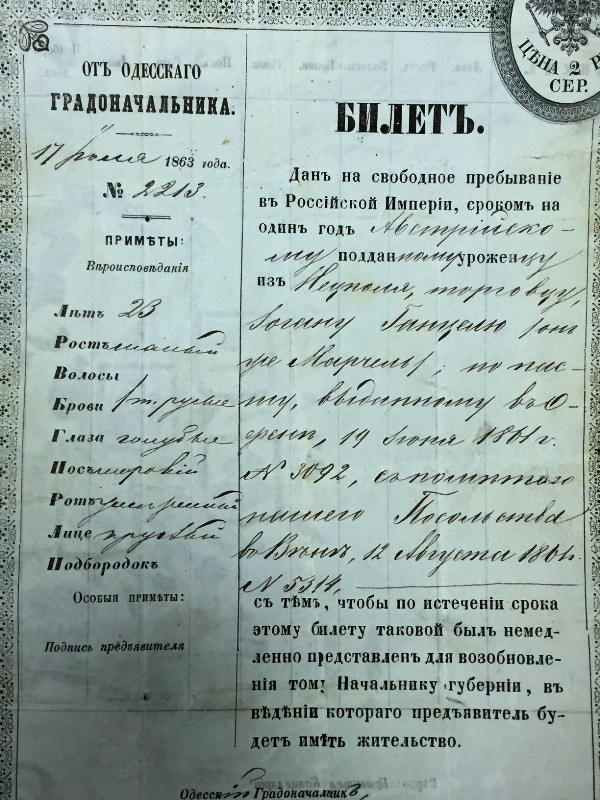 ОТЪ ОДЕССКАГО
ГРАДОНАЧАЛЬНИКА.
17 1863 года.
№ 2213.
ПРИМѢТЫ:
Вѣроисповѣданія
Лѣтъ 23
Ростъ малый
Волосы
Брови т. русые
Глаза голубые
Носъ широкій
Ротъ умѣренный
Лице круглый
Подбородокъ
Особыя примѣты:
Подпись предъявителя
ЦѢНА 2 Р
СЕР.
БИЛЕТЪ.
Данъ на свободное пребываніе
въ Россійской Имперіи, срокомъ на
одинъ годъ Австрійско-
му подданному уроженцу
изъ торговцу,
Іогану Ганцелю (онъ
же Марчель), по пас-
ту, выданному въ
19 Іюня 1861 г.
№ 3092, съ помѣткою
нашего Посольства
въ Вѣнѣ, 12 Августа 1861 г.
№ 5314,
съ тѣмъ, чтобы по истеченіи срока
этому билету таковой былъ немед-
ленно представленъ для возобновле-
нія тому Начальнику губерніи, въ
вѣдѣніи котораго предъявитель бу-
детъ имѣть жительство.
Одесскій Градоначальникъ,